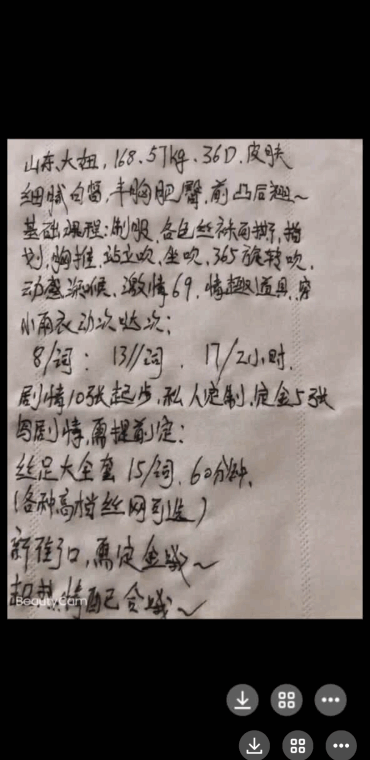 山东大妞，168.57kg.36D.皮肤
细腻白皙，丰胸肥臀，前凸后翘~
基础课程：制服，各色丝袜自撕，指
划，胸推，站立吹，坐吹，365旋转吹，
动感深喉，激情69，情趣道具，穿
小雨衣动次哒次；
8/词：13//词，17/2小时.
剧情10张起步，私人定制，定金5张
剧情，需提前定：
丝足大全套 15/词，60分钟，
（各种高档丝网可选）
新街口，需定金哦~
情配合哦~
BeautyCam